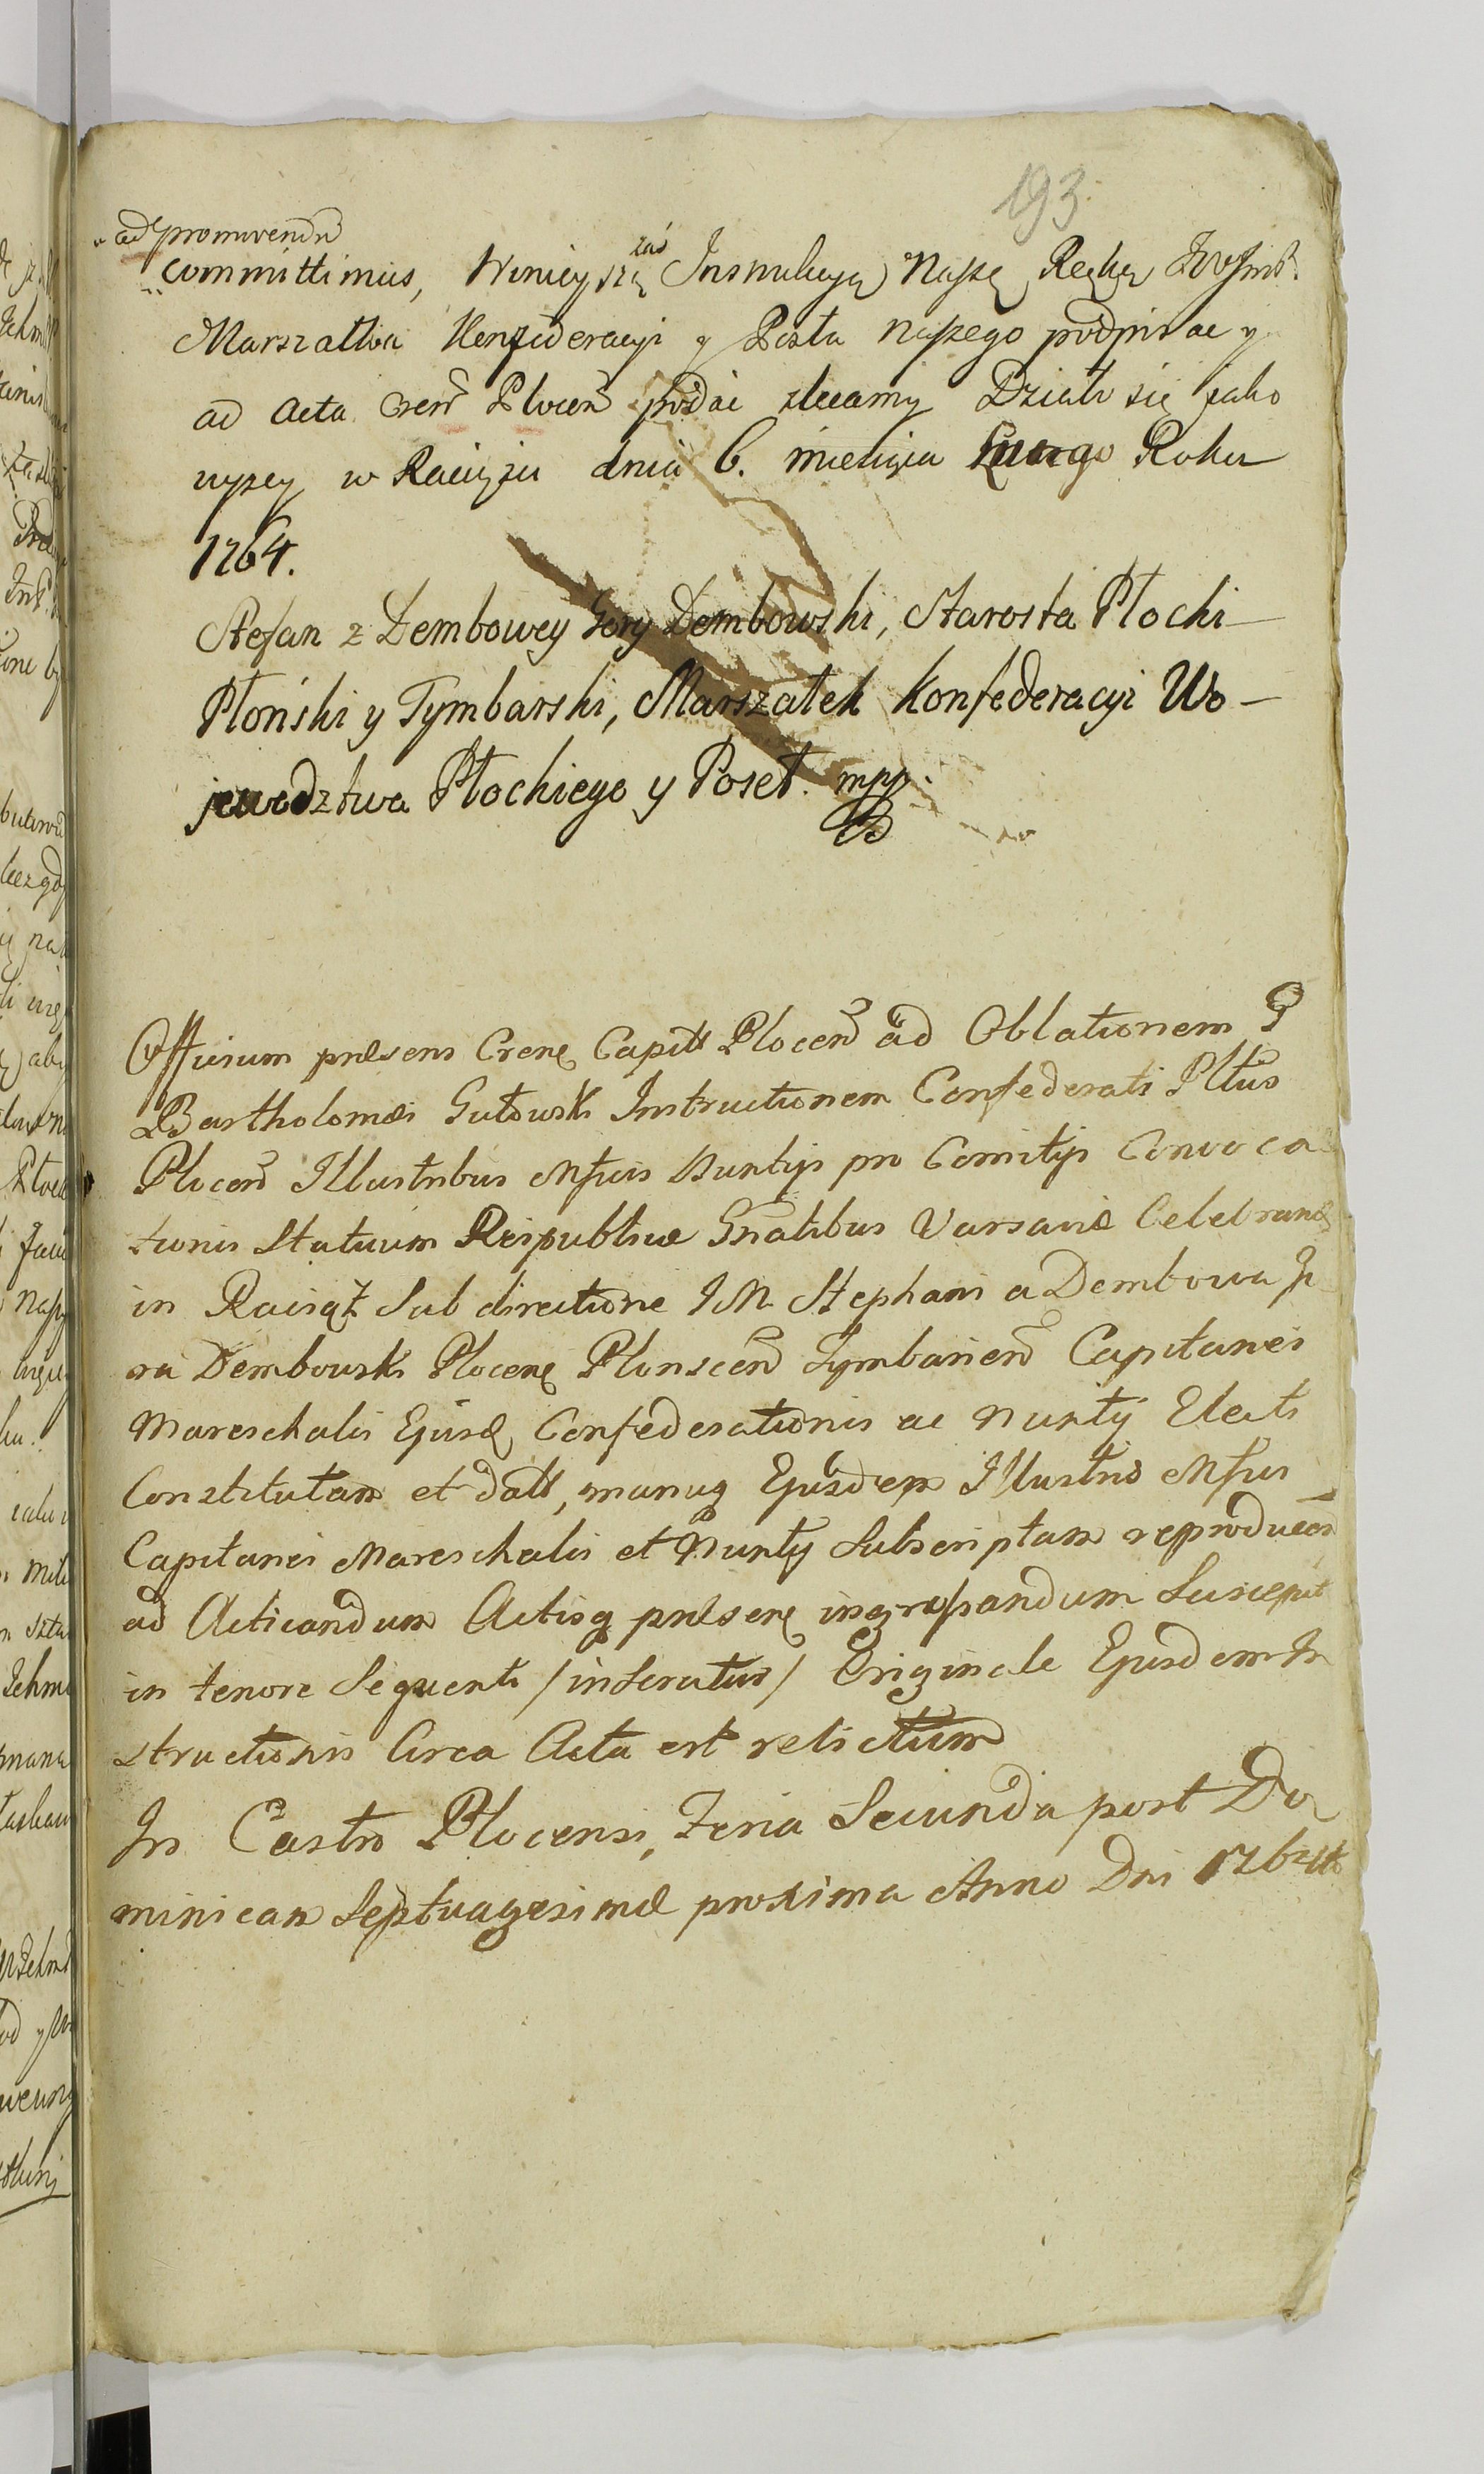 193.
ad promovendū
committimus, Ninieyszą zaś Instrukcyą Naszę Ręką JWJmP.
Marszałka Konfederacyi y Posła naszego podpisac y
ad Acta Cren Plocen podać zlecamy Działo się jako
wyzey w Raciążu dnia 6. miesiąca Lutego Roku
1764.
Stefan z Dembowey Gory Dembowski, Starosta Płocki
Płoński y Tymbarski, Marszałek Konfederacyi Wo-
jewodztwa Płockiego y Poseł. mpp.
Officium præsens Crene Capitle Plocen ad Oblationem G
Bartholomæi Gutowski Instructionem Confederati Pltus
Plocen Illustribus Mfcis Nuntijs pro Comitijs Convoca
tionis Statuum Reipublicæ Gnalibus Varsaviæ Celebrand
in Raciąż Sub directione I M Stephani a Dembowa G
ora Dembowski Plocen Plonscen Tymbarien Capitanei
Mareschalis Ejusd Confederationis ac Nuntij Electi
Constitutam et datt, manuq Ejusdem Illustris Mfci
Capitanei Mareschalis et Nuntij Subscriptam reproducen
ad Acticandum Actisq præsen ingrossandum Suscepit
in tenore Sequenti /inseratur/ Originale Ejusdem In
structionis Circa Acta est relictum
In Castro Plocensi, Feria Secunda post Do
minicam Septuagesimæ proxima Anno Dni 1764to